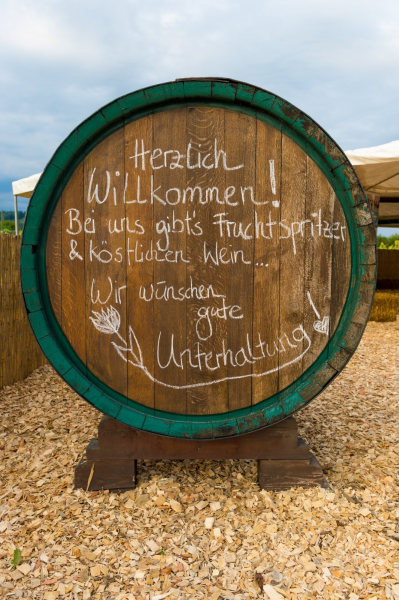 Herzlich
Willkommen!
Bei uns gibt's Fruchtspritzer
& köstlichen Wein...
Wir wünschen
gute
Unterhaltung!